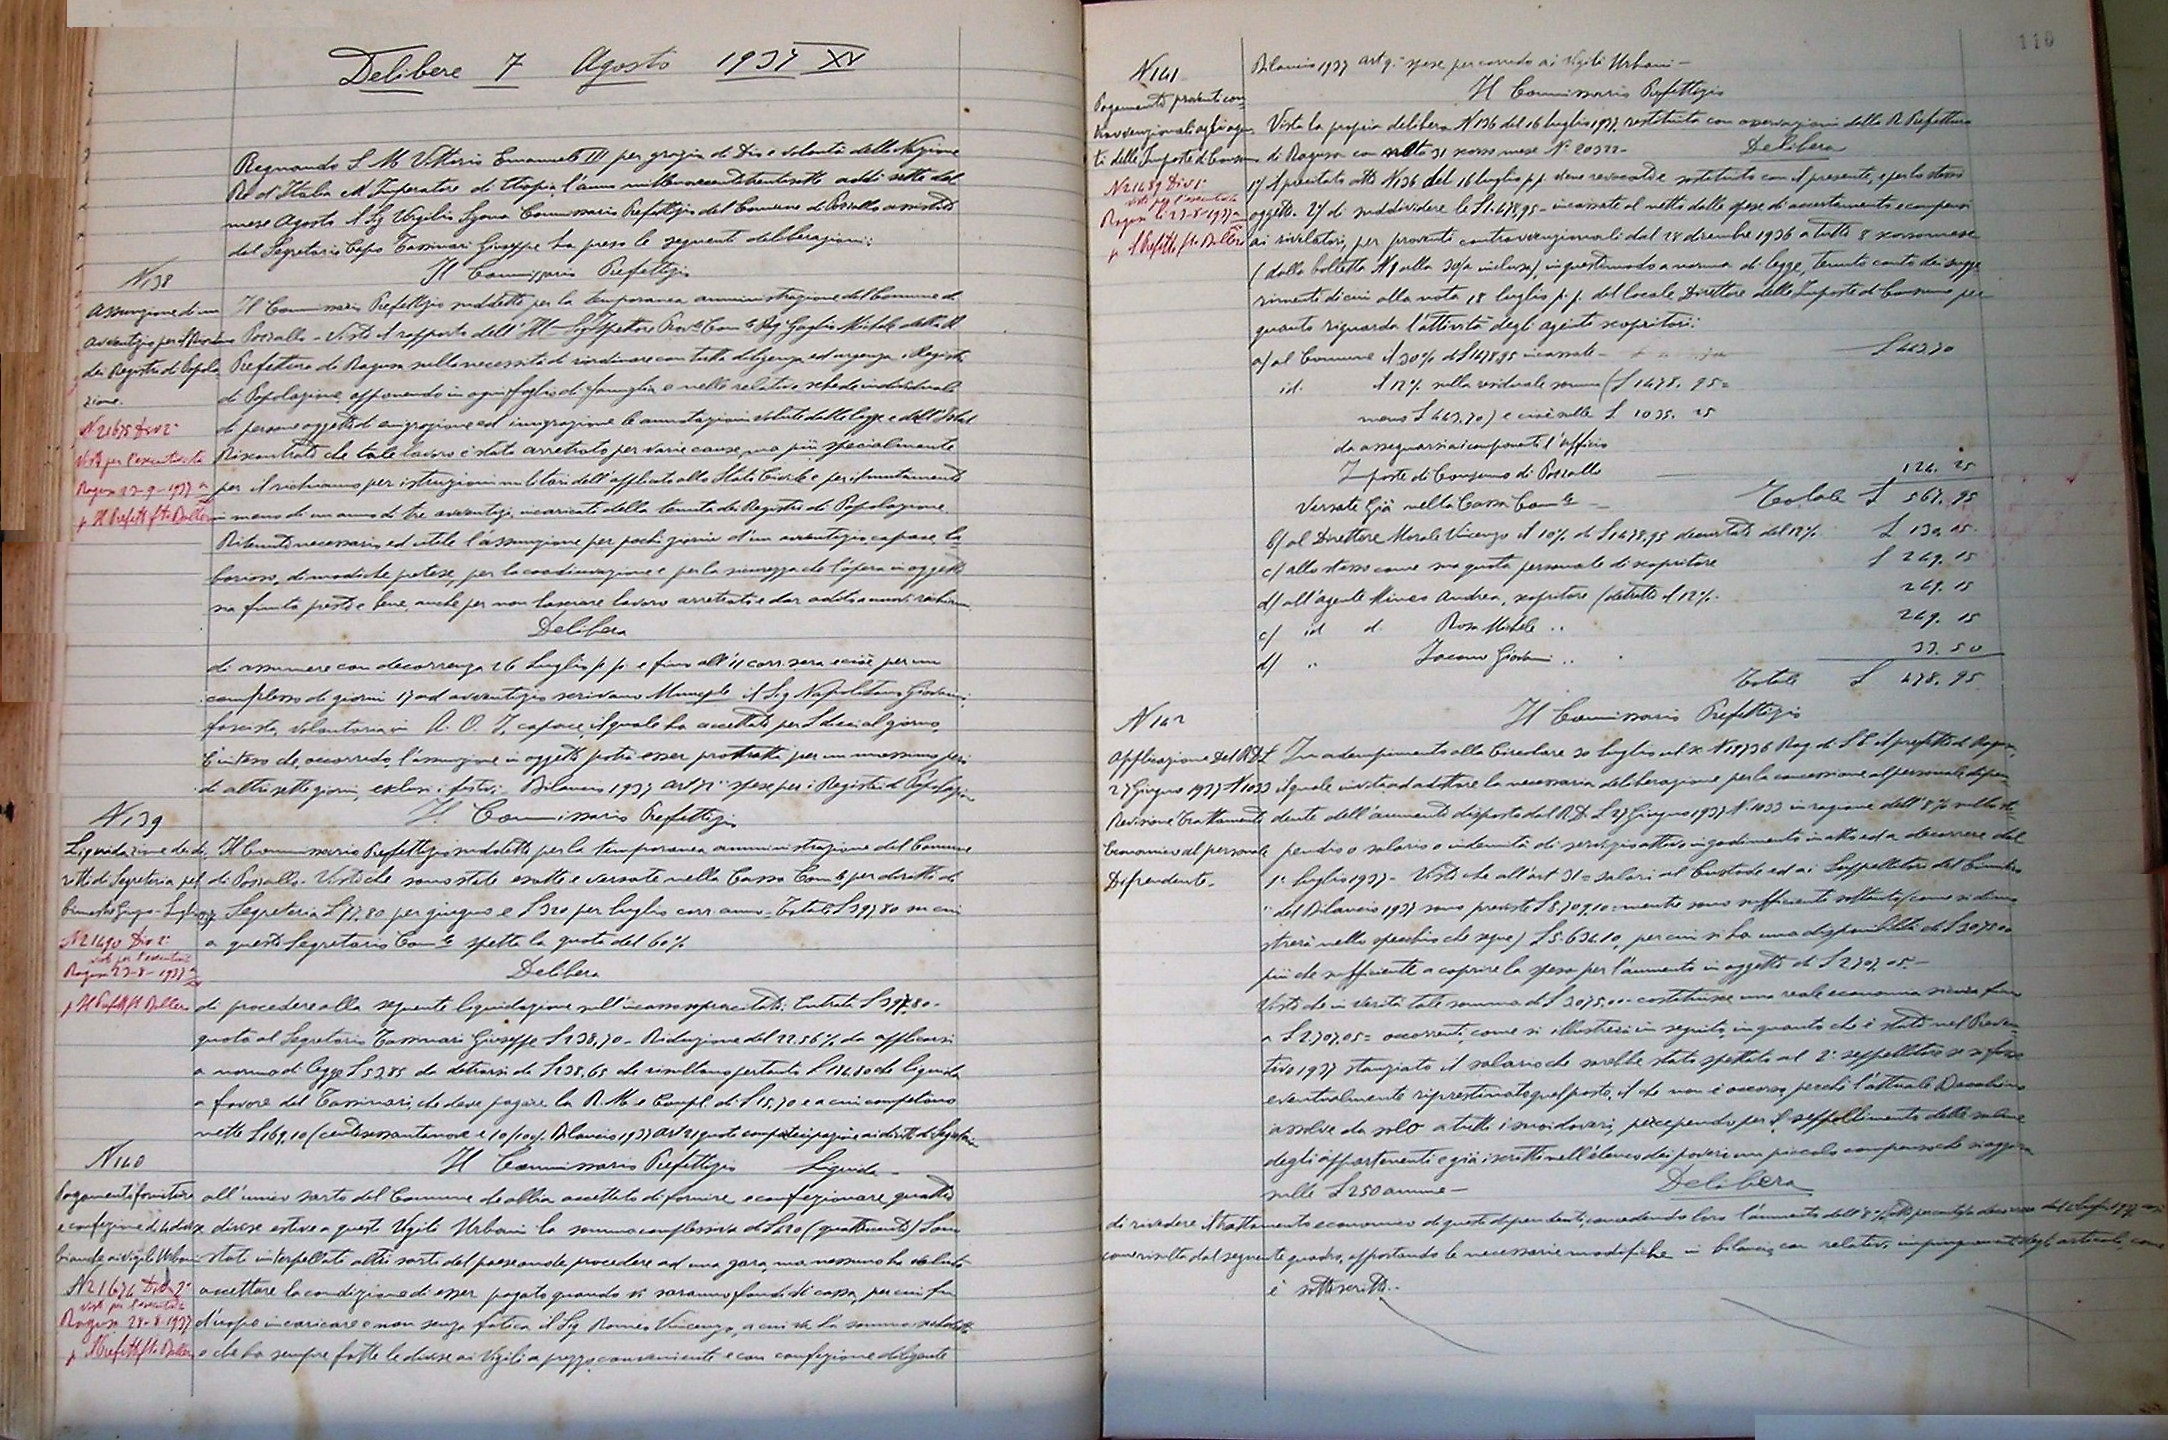 Delibere 7 Agosto 1937 XV
Regnando S. M. Vittorio Emanuele III per grazia di Dio e volontà della Nazione
Re d'Italia e Imperatore di Etiopia, l'anno millenovecentotrentasette addì sette del
mese Agosto il Sig. Virgilio Commissario Prefettizio del Comune di Pozzallo assistito
dal Segretario Capo Tasminari Giuseppe ha preso le seguenti deliberazioni:
N 138
Il Commissario Prefettizio
Assunzione di un
avventizio per il
dei Registri di Popola
zione.
N 21675 Div 2ª
Visto per l'esecutività
Ragusa 23-9-1937
p Il Prefetto fto
Il Commissario Prefettizio suddetto per la temporanea amministrazione del Comune di
Pozzallo - Visto il rapporto dell' Ispettore Prov. Com.le Rag. Michele della R.
Prefettura di Ragusa sulla necessità di riordinare con tutta diligenza ed urgenza i Registri
di Popolazione apponendo in ogni foglio di famiglia e nelle relative schede individuali
di persone oggetto di emigrazione ed immigrazione le annotazioni volute dalla legge e dall'Istat
Riscontrato che tale lavoro è stato arretrato per varie cause, ma più specialmente
per il richiamo per istruzioni militari dell'applicato allo Stato Civile e per il mutamento
in meno di un anno di tre avventizi, incaricati della tenuta dei Registri di Popolazione
Ritenuto necessario ed utile l'assunzione per pochi giorni d'un avventizio, capace, la
borioso, di modiche pretese, per la coordinazione e per la sicurezza che l'opera in oggetto
sia finita presto e bene, anche per non lasciare lavoro arretrato e dar adito a nuovi richiami
Delibera
di assumere con decorrenza 26 Luglio p.p. e fino all'11 corr. sera e cioè per un
complesso di giorni 17 ad avventizio scrivano Municiple il Sig. Napolitano Giovanni,
fascista, volontario in A. O. I., capace, il quale ha accettato per L dieci al giorno,
È inteso che, occorrendo, l'assunzione in oggetto potrà esser protratta per un massimo però
di altri sette giorni, esclusi i festivi - Bilancio 1937 art spese per i Registri di Popolazione
N 139
Il Commissario Prefettizio
Liquidazione dei di
ritti di Segreteria pel
bimestre Giugno-Luglio 937
N 21490 Div 2ª
Visto per l'esecutività
Ragusa 23-8-1937
p Il Prefetto fto
Il Commissario Prefettizio suddetto per la temporanea amministrazione del Comune
di Pozzallo - Visto che sono state esatte e versate nella Cassa Com.le per diritti di
Segreteria L 77,80 per giugno e L 320 per luglio corr. anno - Totale L 397,80 su cui
a questo Segretario Com.le spetta la quota del 60%
Delibera
di procedere alla seguente liquidazione sull'incasso sopracitato: Entrate L 397,80 -
quota al Segretario Tasminari Giuseppe L 238,70 - Riduzione del 22.56% da applicarsi
a norma di legge L 53,85 da detrarsi da L 238,65 che risultano pertanto L 184,80 che liquida
a favore del Tasminari, che deve pagare la R. M. e Compl. di L 15,70 e a cui competono
nette L 169,10 (centosessantanove e 10/100). Bilancio 1937 art 21 quote compartecipazione ai diritti di Segreteria
N 140
Il Commissario Prefettizio Liquida -
Pagamento fornitura
e confezione di 4 divise
bianche ai vigili Urbani
N 21674 Div 2ª
Visto per l'esecutività
Ragusa 28-8-1937
p Il Prefetto fto
all'unico sarto del Comune che abbia accettato di fornire e confezionare quattro
divise estive a questi Vigili Urbani la somma complessiva di L 420 (quattrocento) Sono
stati interpellati altri sarti del paese onde procedere ad una gara, ma nessuno ha voluto
accettare la condizione di esser pagato quando vi saranno fondi di cassa, per cui fu
d'uopo incaricare e non senza fatica il Sig. Romeo Vincenzo, a cui va la somma suddetta
e che ha sempre fatto le divise ai Vigili a prezzo conveniente e con confezione diligente
110
Bilancio 1937 art 9: spese per corredo ai Vigili Urbani -
N 141
Il Commissario Prefettizio
Pagamento proventi con
travvenzionali agli agen
ti delle Imposte di Consumo
N 21489 Div 1ª
Visto per l'esecutività
Ragusa li 23-8-1937
p Il Prefetto fto
Vista la propria delibera N 136 del 16 luglio 1937, restituita con osservazioni dalla R. Prefettura
di Ragusa con nota 31 scorso mese N. 20322 - Delibera
1°/ Il precitato atto N 136 del 16 luglio p.p. deve revocarsi e sostituito con il presente, e per lo stesso
oggetto. 2°/ di suddividere le L 1478,95 - incassate al netto dalle spese di accertamento e compensi
ai rivelatori, per proventi contravvenzionali dal 28 dicembre 1936 a tutto 8 scorso mese
(dalla bolletta N 9 alla 30/a inclusa) in questo modo a norma di legge, tenuto conto dei sugge
rimenti di cui alla nota 18 luglio p.p. del locale Direttore delle Imposte di Consumo per
quanto riguarda l'attività degli agenti scopritori:
a/ al Comune il 30% di L 1478,95 incassate - L 443,70
id. il 12% sulla residuale somma (L 1478. 95 =
meno L 443,70) e cioè sulle L 1035. 25
da assegnarsi ai componenti l'ufficio
Imposte di Consumo di Pozzallo 124. 25
Versate già nella Cassa Com.le - Totale L 567. 95
b/ al Direttore Morale Vincenzo il 10% di L 1478,95 decurtato del 12% L 130,15
c/ allo stesso come sua quota personale di scopritore L 249. 15
d/ all'agente Mineo Andrea, scopritore (detratto il 12%. 249. 15
c/ id d. Rosa Michele .. 249. 15
d/ .. Iacono Giovanni .. 33. 50
Totale L 478. 95
N 142
Il Commissario Prefettizio
Applicazione Del R.D.L
27 Giugno 1937 N 1033
Revisione trattamento
Economico al personale
Dipendente.
In adempimento alla Circolare 30 luglio N 18736 Rag. di S.E. il prefetto di Ragusa,
il quale invita ad adottare la necessaria deliberazione per la concessione al personale dipen
dente dell'aumento disposto dal R.D.L. 27 Giugno 1937 N. 1033 in ragione dell'8% sullo sti
pendio o salario o indennità di servizio attivo in godimento in atto ed a decorrere dal
1° luglio 1937 - Visto che all'art. 31 = salari al Custode ed ai Seppellitori del Cimitero
" del Bilancio 1937 sono previste L 8.709,10: mentre sono sufficienti soltanto (come si dimo
strerà nello specchio che segue) L 5.634,10, per cui si ha una disponibilità di L 3075.00
più che sufficiente a coprire la spesa per l'aumento in oggetto di L 2707,05. -
Visto che in verità tale somma di L 3075.00 - costituisce una reale economia sicura fino
a L 2.707,05 = occorrenti, come si illustrerà in seguito, in quanto che è stato nel Preven
tivo 1937 stanziato il salario che sarebbe stato spettato al 2° seppellitore se si fosse
eventualmente ripristinato quel posto, il che non è occorso, perché l'attuale
assolve da solo a tutti i suoi doveri, percependo per il seppellimento delle salme
degli appartenenti e già iscritti nell'elenco dei poveri un piccolo compenso che si aggira
sulle L 250 annue - Delibera
di rivedere il trattamento economico di questi dipendenti, concedendo loro l'aumento dell'8%
come risulta dal seguente quadro, apportando le necessarie modifiche in bilancio, con relativi impinguamenti degli articoli, come
è sottoscritto. -